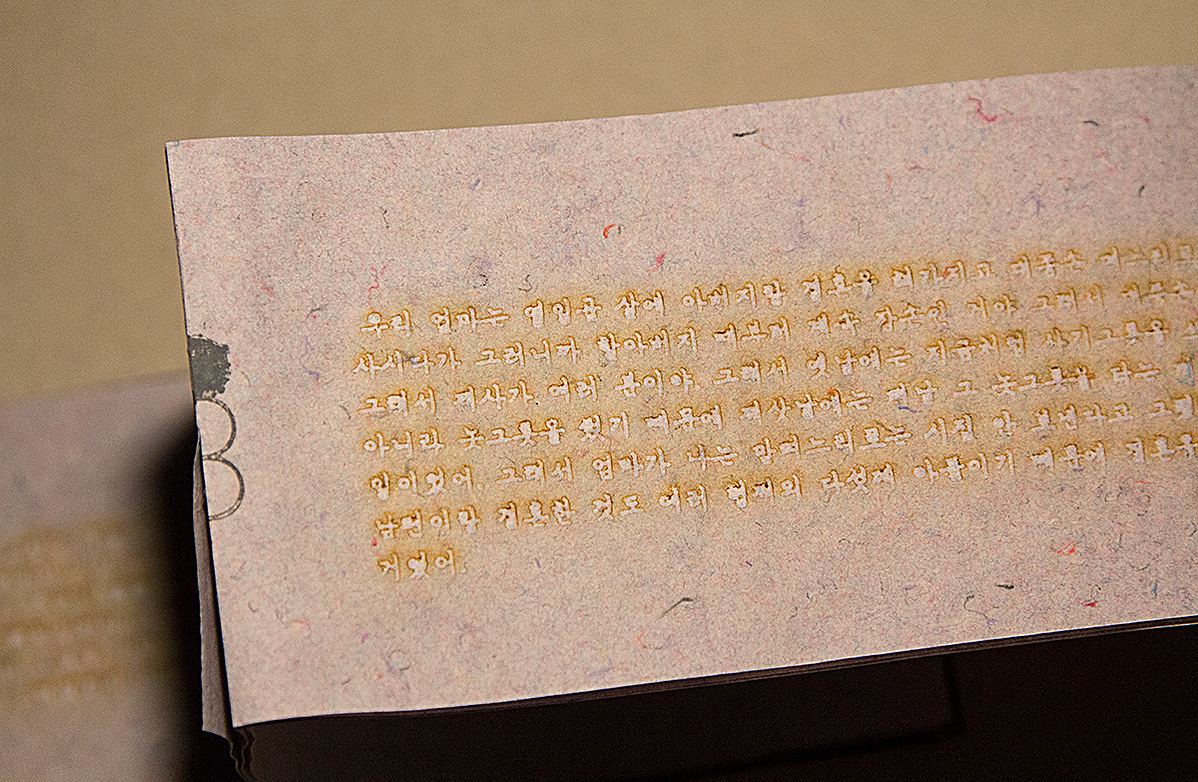 우리 엄마는 열일곱 살에 아버지랑 결혼을 하게 되고 며느리로
사시다가 그러니까 할아버지 장손인 거야 그래서
그래서 제사가 여러 분이야. 그래서 옛날에는 지금처럼 사기그릇을
아니라 놋그릇을 썼기 때문에 제삿날에는 맨날 그 놋그릇을 닦는
일이었어. 그래서 엄마가 나는 맏며느리로는 시집 안 보낸다고 그래
남편이랑 결혼한 것도 여러 형제의 다섯째 아들이기 때문에 결혼을
시켰어.